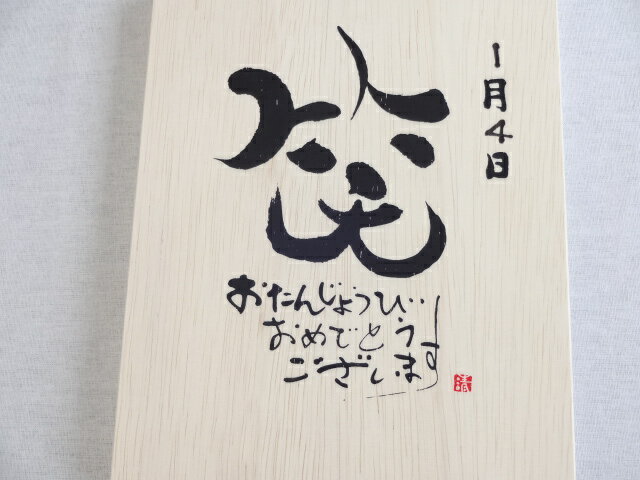 1月4日
笑
おたんじょうび
おめでとう
ございます
晴